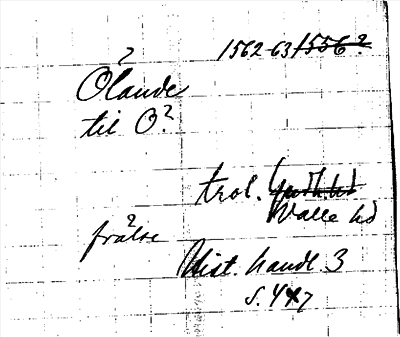 ? 1562-63 1556?
Ölande
til O?
trol. Gudh. hd
Valle hd
? frälse
Hist. handl. 3
s. 447